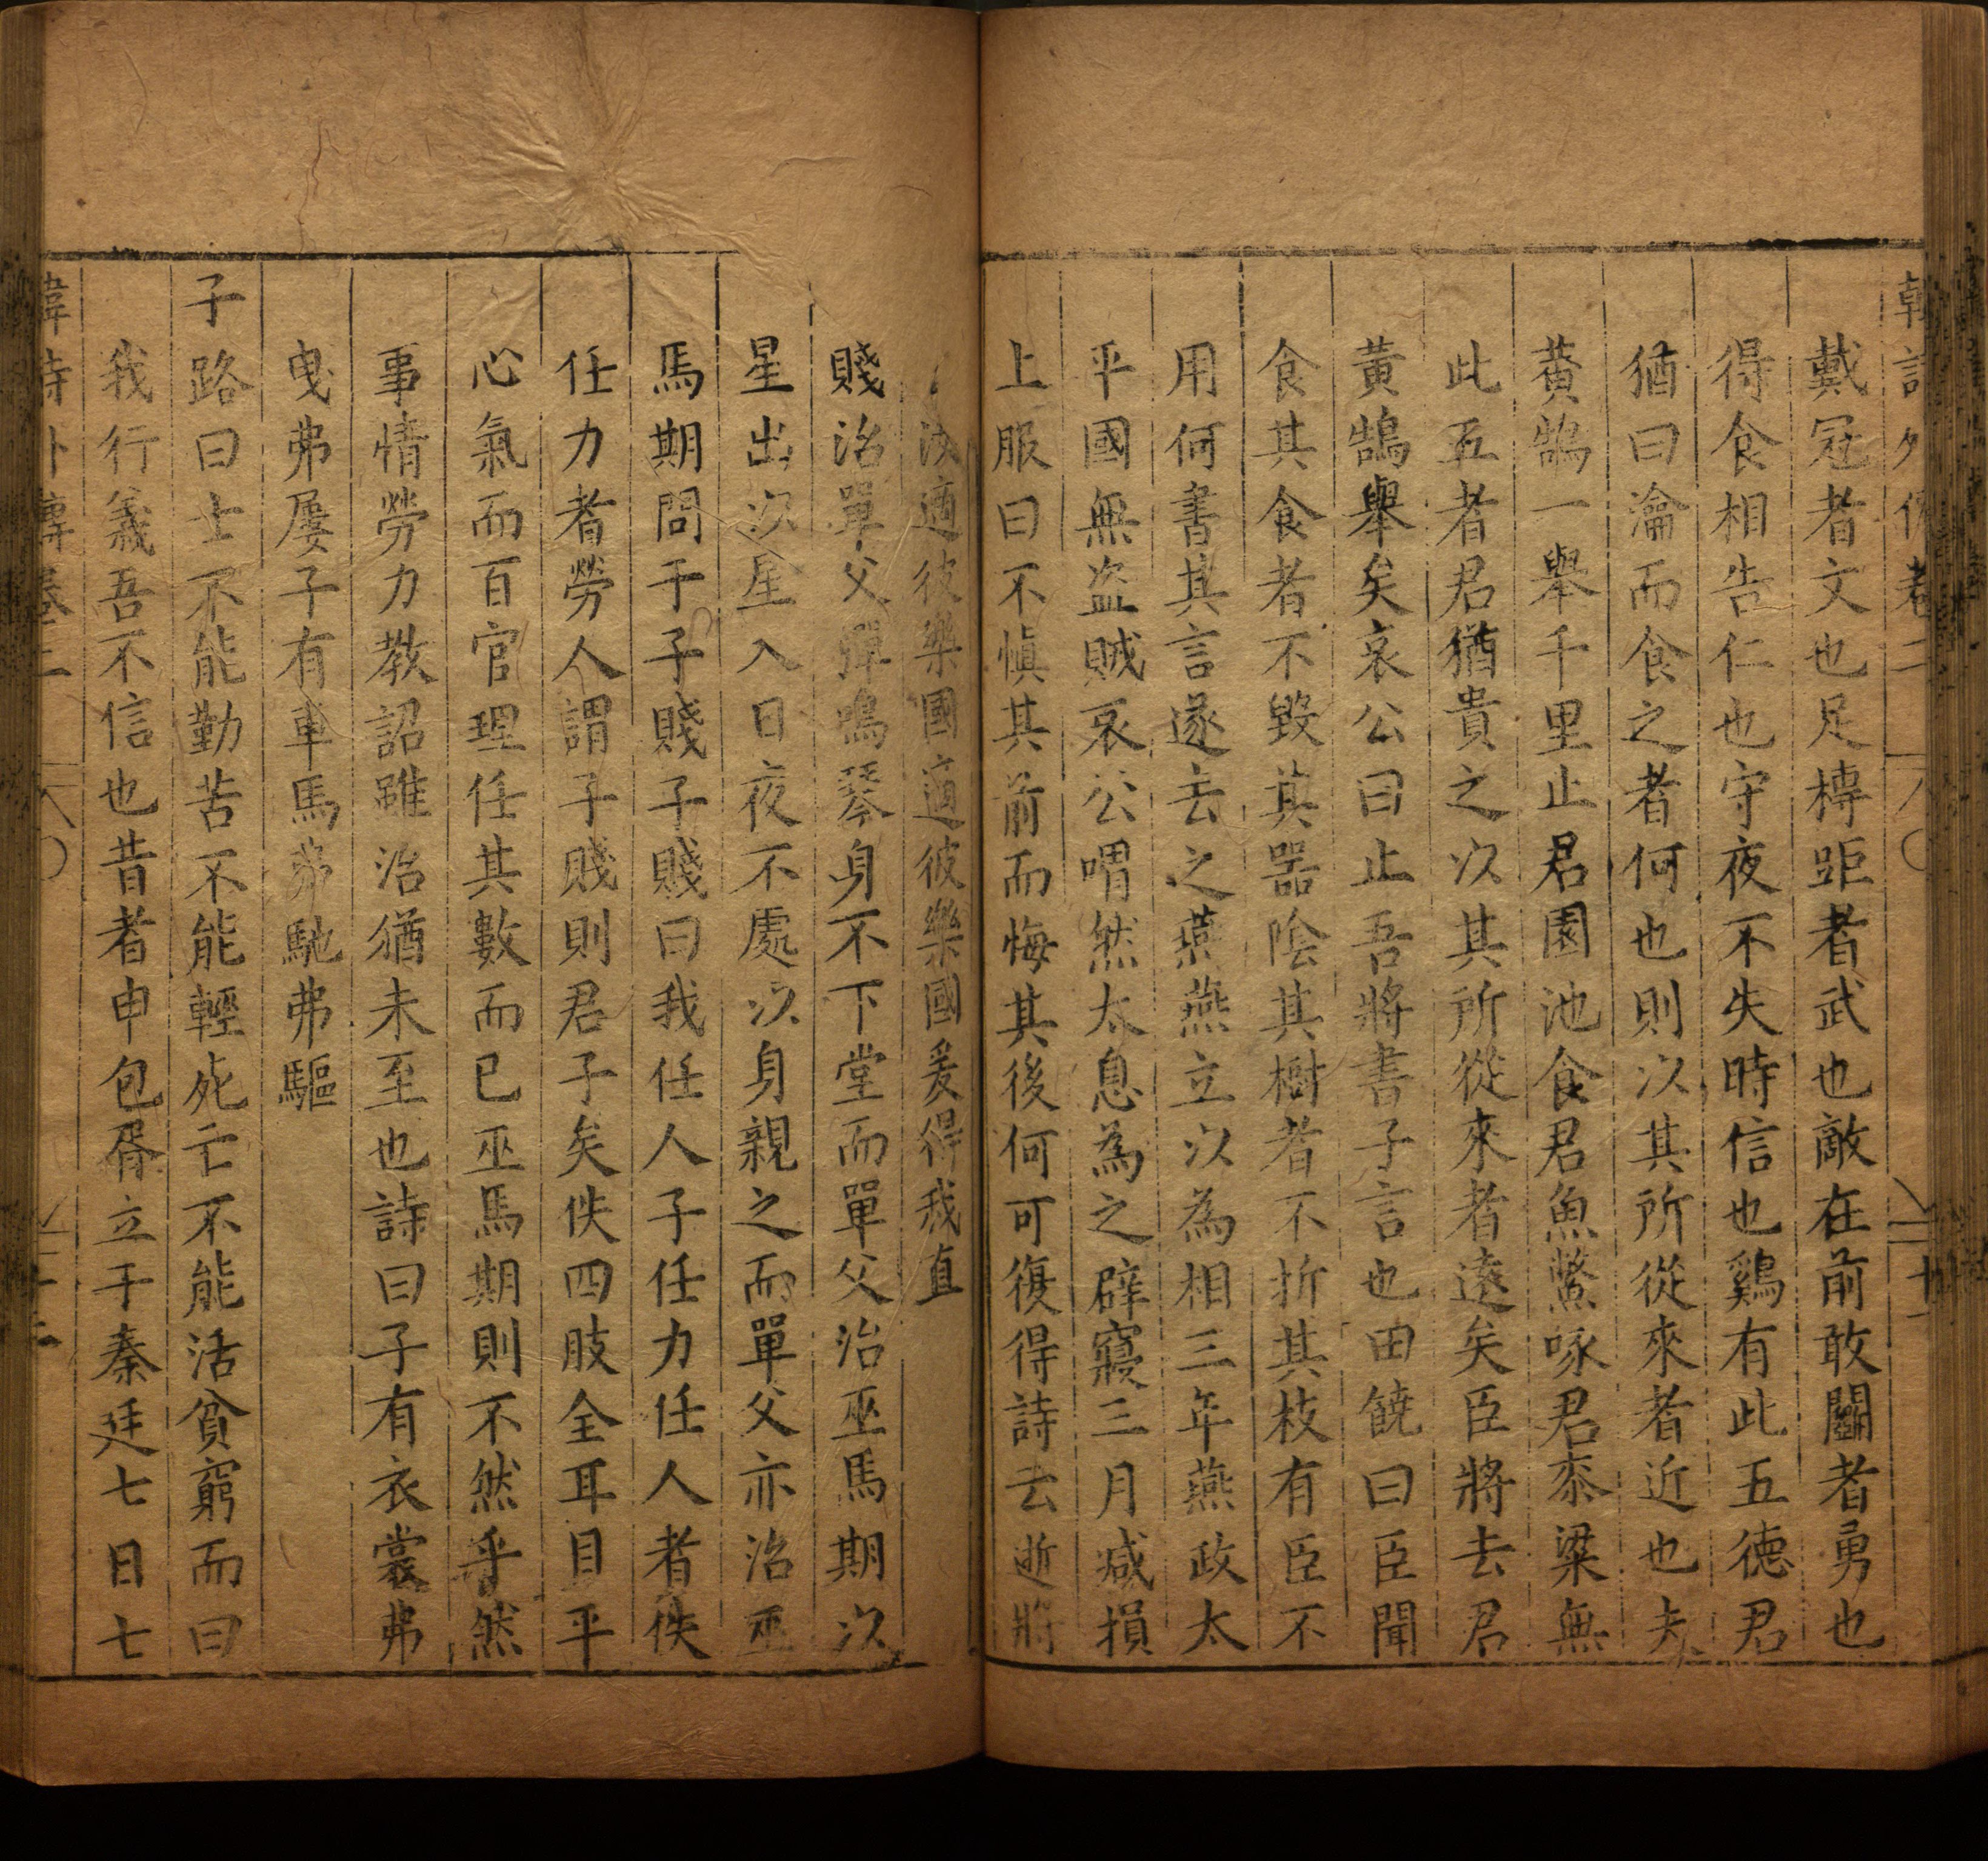 韓詩外傳卷二 十一
戴冠者文也足榑距者武也敵在前敢鬭者勇也
得食相告仁也守夜不失時信也鷄有此五德君
猶曰瀹而食之者何也則以其所從來者近也夫
黃鵠一舉千里止君園池食君魚鱉啄君黍粱無
此五者君猶貴之以其所從來者遠矣臣將去君
黃鵠舉矣哀公曰止吾將書子言也田饒曰臣聞
食其食者不毀其器陰其樹者不折其枝有臣不
用何書其言遂去之燕燕立以為相三年燕政太
平國無盜賊哀公喟然太息為之辟寢三月减損
上服曰不慎其前而悔其後何可復得詩云逝將
去汝適彼樂國適彼樂國爰得我直
賤治單父彈鳴琴身不下堂而單父治巫馬期以
星出以星入日夜不處以身親之而單父亦治巫
馬期問于子賤子賤曰我任人子任力任人者佚
任力者勞人謂子賤則君子矣佚四肢全耳目平
心氣而百官理任其數而已巫馬期則不然乎然
事情勞力教詔雖治猶未至也詩曰子有衣裳弗
曳弗屢子有車馬弗馳弗驅
子路曰士不能勤苦不能輕死亡不能活貧窮而曰
我行義吾不信也昔者申包胥立于秦廷七日七
韓詩外傳卷二